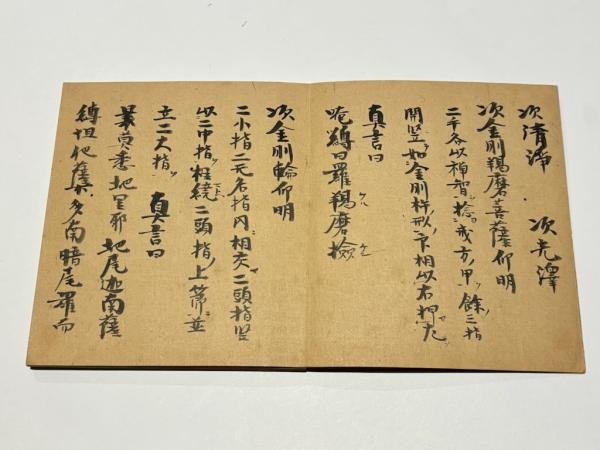 次清淨　次光澤
次金剛羯磨菩薩印明
二手各以禅智捻戒方甲餘三指
開竪如金剛杵形乍相以右押左
真言曰
唵嚩曰羅羯磨撿
次金剛輪印明
二小指二无名指内相交二頭指竪
以二中指糺繞二頭指上節並
立二大指　真言曰
曩莫悉地里耶地尾迦南薩
縛怛他蘖多南暗尾羅而